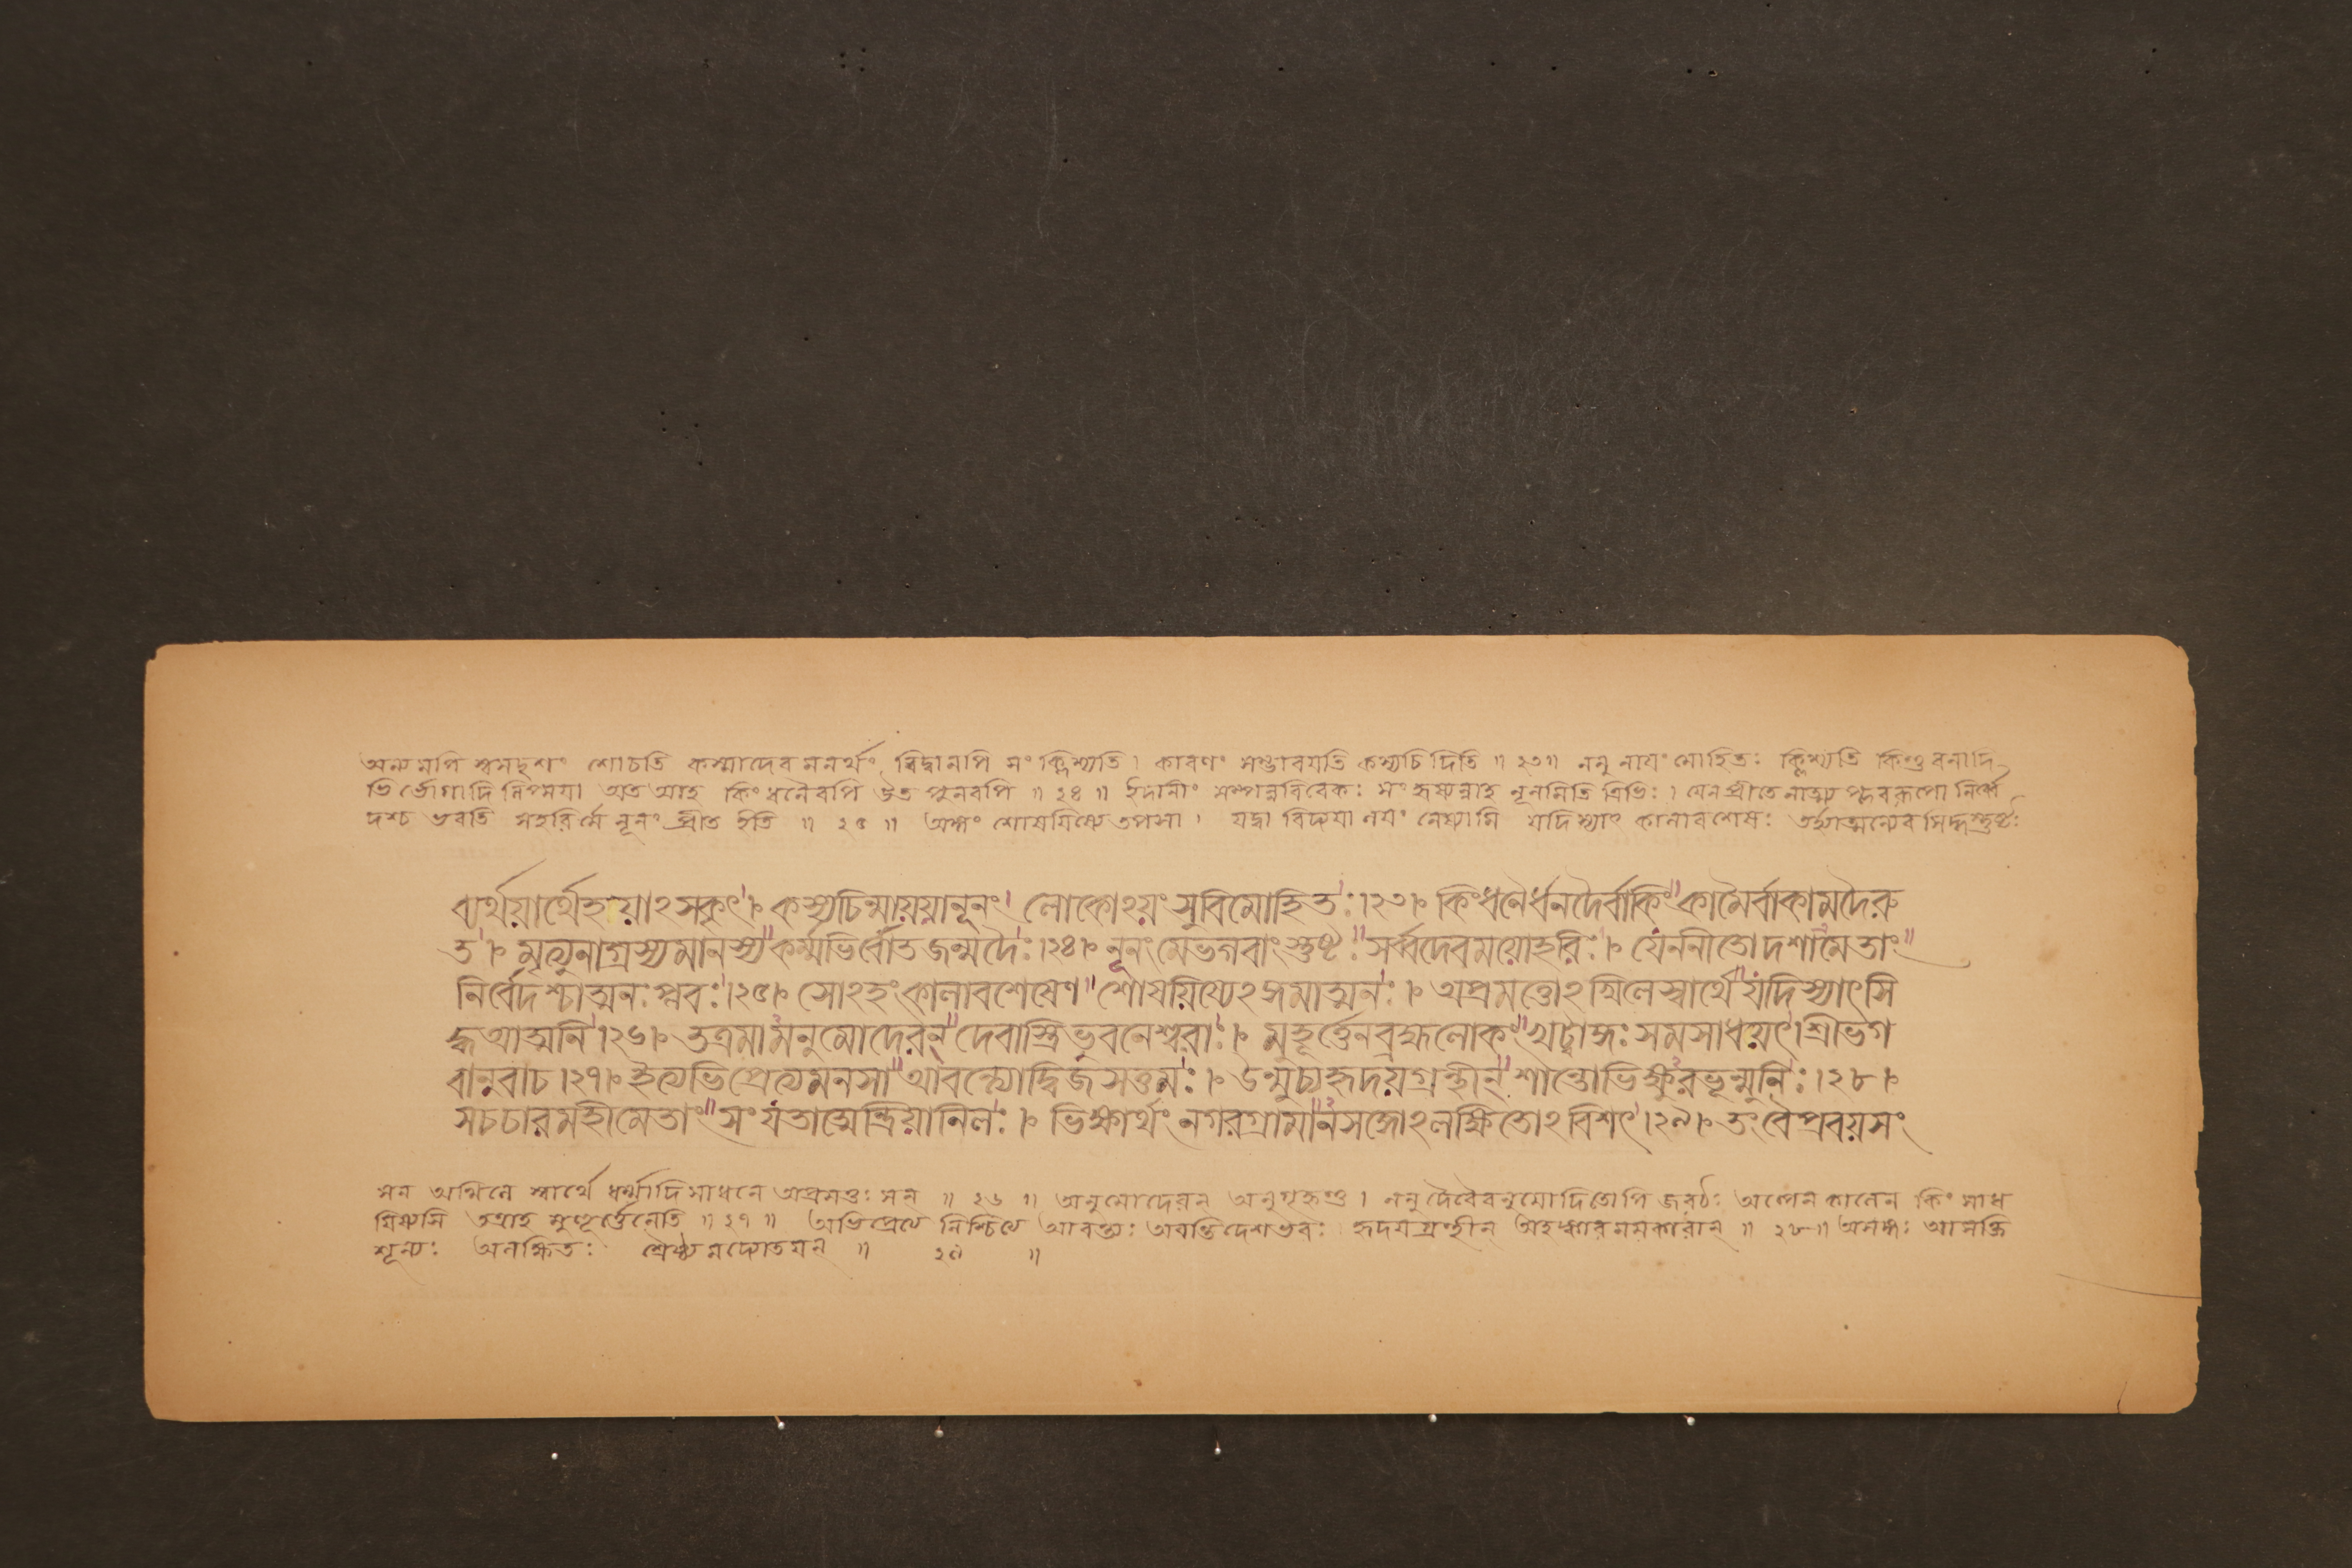 অন্যমপি স্বসদৃশং শোচতি কস্মাদেবমনর্থং বিদ্বানপি সংক্লিশ্যতি। কারণং সম্ভাবযতি কস্যচিদিতি ॥ ২৩॥ ননু নাযং মোহিতঃ ক্লিশ্যতি কিন্তু ধনাদি
ভি র্ভোগাদি লিপ্সযা অত আহ কিং ধনৈরপি উত পুনরপি ॥ ২৪ ॥ ইদানীং সম্পন্নবিবেকঃ সংহৃষ্যন্নাহ নূনমিতি ত্রিভিঃ । যেন প্রীতেনাত্ম প্লবরূপো নির্ব্বে
দশ্চ ভবতি সহরির্মে নূনং প্রীত ইতি ॥ ২৫ ॥ অঙ্গং শোষযিষ্যে তপসা। যদ্বা বিদ্যযা লযং নেষ্যামি যদি স্যাৎ কালাবশেষঃ তর্হ্যাত্মন্যেব সিদ্ধস্তুষ্টঃ
ব্যর্থয়ার্থেহয়াঽসকৃৎ। কস্যচিন্মায়য়ানূনং। লোকোঽয়ং সুবিমোহিতঃ।২৩। কিংধনৈর্ধনদৈর্বাকিং কামৈর্বাকামদৈরু
ত। মৃত্যুনাগ্রস্যমানস্য কর্ম্মভির্বোতজন্মদৈঃ।২৪। নূনংমেভগবাংস্তুষ্টঃ সর্ব্বদেবময়োহরিঃ। যেননীতোদশামেতাং
নির্বেদশ্চাত্মনঃপ্লবঃ।২৫। সোঽহংকালাবশেষেণ শোষয়িষ্যেঽঙ্গমাত্মনঃ। অপ্রমত্তোঽখিলেস্বার্থে যদিস্যাৎসি
দ্ধআত্মনি।২৬। তত্রমামনুমোদেরন্ দেবাস্ত্রিভুবনেশ্বরাঃ। মুহূর্ত্তেনব্রহ্মলোকং খট্বাঙ্গঃ সমসাধয়েৎ। শ্রীভগ
বানুবাচ।২৭। ইত্যভিপ্রেত্যমনসা আবন্ত্যোদ্বিজসত্তমঃ। উন্মুচ্যহৃদয়গ্রন্থীন্ শান্তোভিক্ষুরভূন্মুনিঃ।২৮।
সচচারমহীমেতাং সংযতাত্মেন্দ্রিয়ানিলঃ। ভিক্ষার্থং নগরগ্রামানসঙ্গোঽলক্ষিতোঽবিশৎ।২৯। তংবৈপ্রবয়সং
সন অখিলে স্বার্থে ধর্ম্মাদিসাধনে অপ্রমত্তঃ সন্ ॥ ২৬ ॥ অনুমোদেরন্ অনুগৃহ্ণন্তু। ননু দৈবৈরনুমোদিতোপি জরঠঃ অল্পেন কালেন কিং সাধ
যিষ্যসি তত্রাহ মুহূর্ত্তেনেতি ॥ ২৭ ॥ অভিপ্রেত্য নিশ্চিত্য আবন্ত্যঃ অবন্তিদেশভবঃ হৃদযগ্রন্থীন্ অহঙ্কারমমকারান্ ॥ ২৮॥ অসঙ্গঃ আসক্তি
শূন্যঃ অলক্ষিতঃ শ্রৈষ্ঠ্যমদ্যোতযন্ ॥ ২৯ ॥